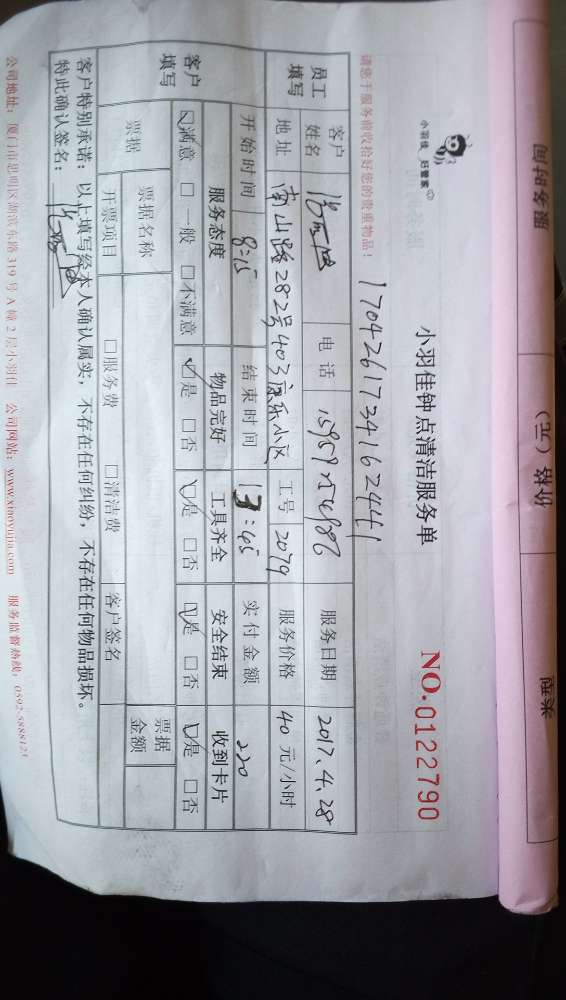 小羽佳 好管家
小羽佳钟点清洁服务单
NO.0122790
请您于服务前收拾好您的贵重物品!
1704261734162441
员工填写 客户姓名 电话 服务日期 2017.4.28
地址 南山路282号403康乐小区 工号 2079 服务价格 40元/小时
客户填写 开始时间 8:15 结束时间 13:45 实付金额 220
服务态度 物品完好 工具齐全 安全结束 收到卡片
☑满意 □一般 □不满意 ☑是 □否 ☑是 □否 ☑是 □否 ☑是 □否
票据 票据名称 票据金额
开票项目 □服务费 □清洁费 客户签名
客户特别承诺:以上填写经本人确认属实,不存在任何纠纷,不存在任何物品损坏。
特此确认签名:
公司地址:厦门市思明区湖滨东路319号A幢2层小羽佳 公司网站:www.xiaoyujia.com 服务监督热线:0592-5888121
服务时间 价格(元) 类型